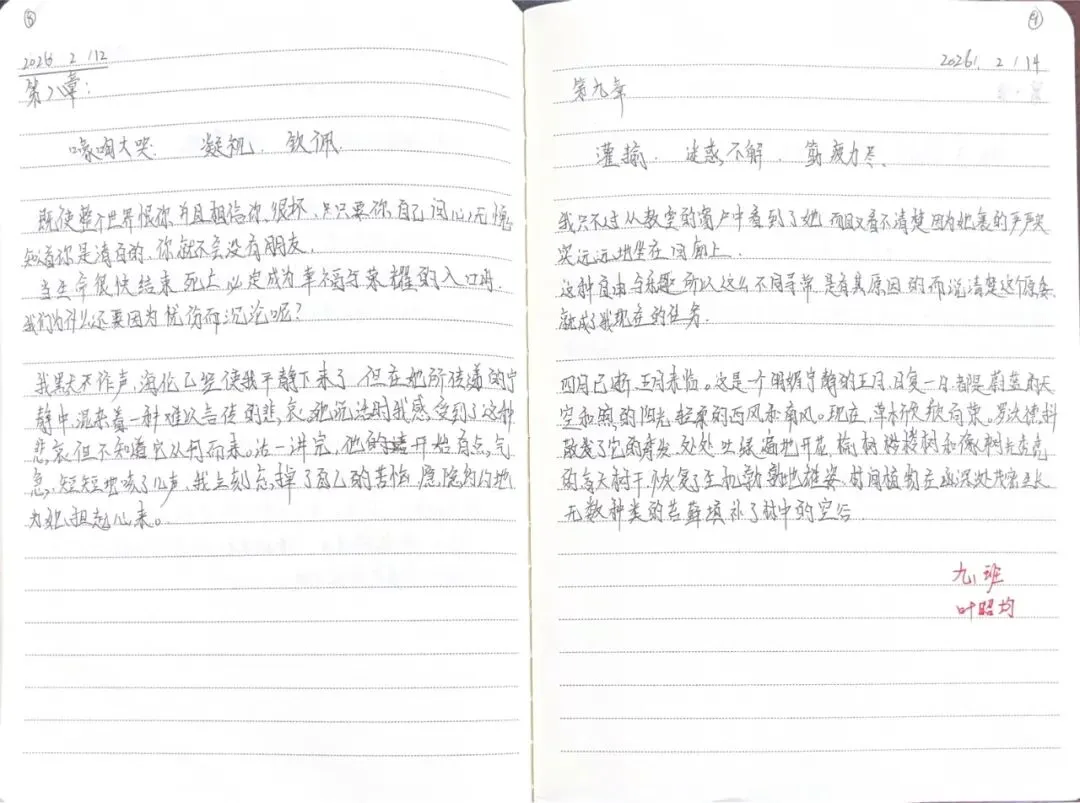 ⑧
2026 2/12
第八章:
嚎啕大哭. 凝视. 钦佩.
既使整个世界恨你并且相信你很坏,只要你自己问心无愧
知道你是清白的,你就不会没有朋友.
当生命很快结束死亡必定成为幸福与荣耀的入口时
我们为什么还要因为忧伤而沉沦呢?
我默不作声,海伦已经使我平静下来了但在她所传递的宁
静中混杂着一种难以言传的悲哀.她说话时我感受到了这种
悲哀但不知道它从何而来.话一讲完,他的 开始有点气
急,短短地咳了几声,我立刻忘掉了自己的苦恼,隐隐约约地
为她担起心来。
2026. 2/14
第九章
灌输. 迷惑不解. 筋疲力尽.
我只不过从教室的窗户中看到了她而且又看不清楚因为她裹的严严实
实远远地坐在回廊上.
这种自由与乐趣所以这么不同寻常是有其原因的而说清楚这个原委
就成了我现在的任务.
四月已逝,五月来临。这是一个明媚宁静的五月,日复一日都是蔚蓝的天
空和煦的阳光轻柔的西风和南风。现在,草木欣欣向荣。罗沃德抖
散了它的秀发,处处吐绿遍地开花,榆树梣树和橡树
的高大树干恢复了生机勃勃地雄姿,林间植物在幽深处茂密生长
无数种类的苔藓填补了林中的空谷.
九.班
叶昭均